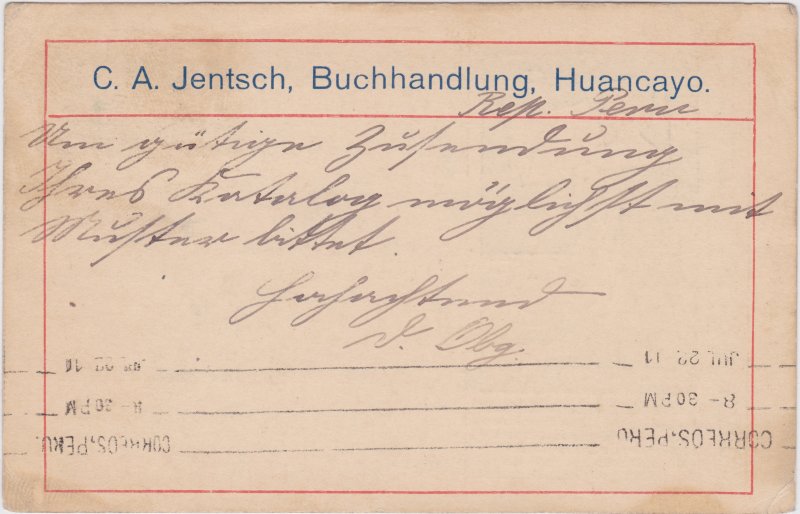 C. A. Jentsch, Buchhandlung, Huancayo.
Rep. Peru
Um gütige Zusendung
Ihres Katalog möglichst mit
Muster bittet.
Hochachtend
d. Obg.
JUL 22 11 JUL 22 11
8 - 30 PM 8 - 30 PM
CORREOS, PERU. CORREOS, PERU